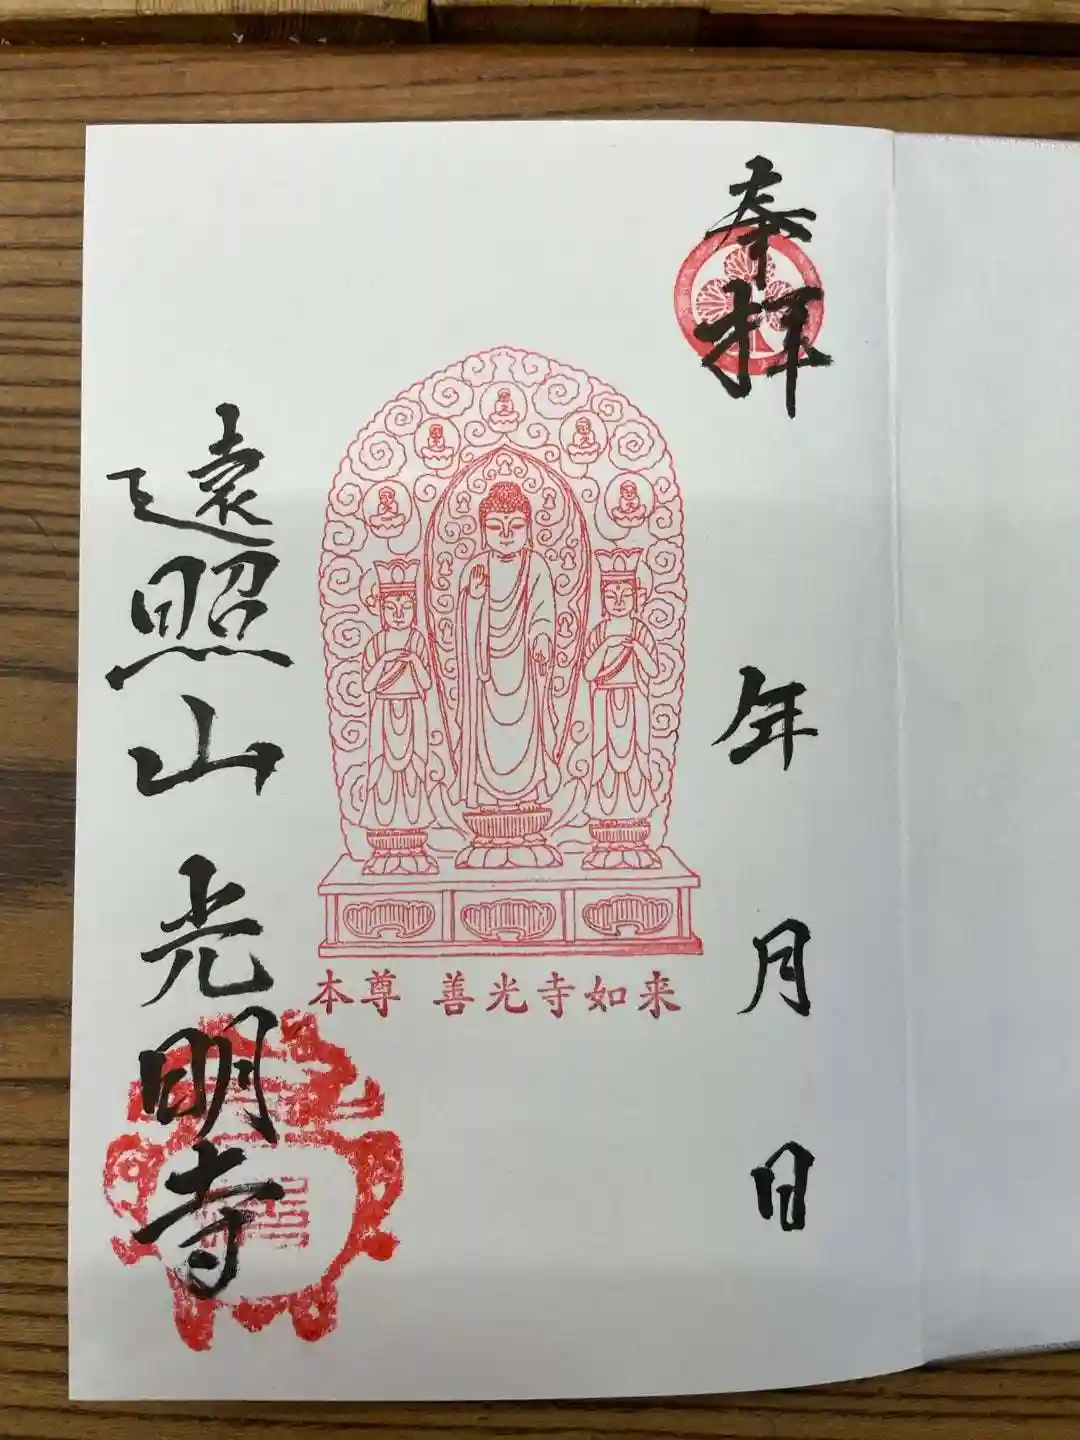 奉拝
年 月 日
本尊 善光寺如来
遠照山 光明寺